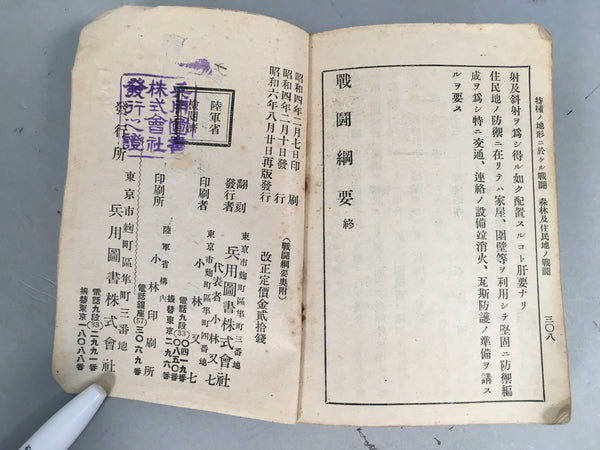 特種ノ地形ニ於ケル戰鬪 森林及住民地ノ戰鬪
三〇八
射及斜射ヲ爲シ得ル如ク配置スルコト肝要ナリ
住民地ノ防禦ニ在リテハ家屋、圍壁等ヲ利用シテ堅固ニ防禦編
成ヲ爲シ特ニ交通、連絡ノ設備竝消火、瓦斯防護ノ準備ヲ講ス
ルヲ要ス
戰鬪綱要 終
昭和四年二月七日印刷
昭和四年二月十日發行
昭和六年八月廿日再版發行
(戰鬪綱要奧附)
改正定價金貳拾錢
陸軍省
檢閱濟
翻刻
發行者
東京市麴町區隼町三番地
兵用圖書株式會社
代表者 小林又七
印刷者
東京市麴町區隼町四番地
小林又七
電話九段(33)〇四一九番
二〇八五〇番
振替東京一〇〇八六番
印刷所
陸軍省構內
小林印刷所
電話銀座(57)三〇六九番
發行所
東京市麴町區隼町三番地
兵用圖書株式會社
電話九段(33)二九九一番
振替東京一八〇八八番
兵用圖書
株式會社
發行之證